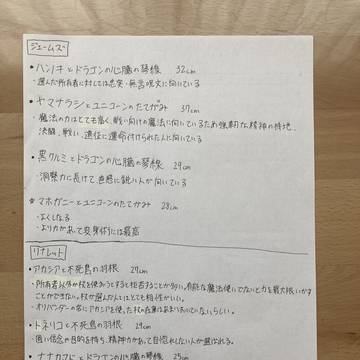 ジェームズ
・ハンノキとドラゴンの心臓の琴線 32cm
・選んだ所有者に対しては忠実・無言呪文に向いている
・ヤマナラシとユニコーンのたてがみ 37cm
・魔法の力はとても高く、戦い向けの魔法に向いているため強靭な精神の持ち
決闘、戦い、運命付けられた人に向いている
・黒クルミとドラゴンの心臓の琴線 29cm
・洞察力に長けて、直感に鋭い人が向いている
☆マホガニーとユニコーンのたてがみ 28cm
・よくしなる
・より力があって変身術には最高
リナレット
・アカシアと不死鳥の羽根 27cm
・所有者以外が杖を使おうとすると拒否することが多い。有能な魔法使いでないと力を最大限いかす
ことができない。杖が選んだ人ではとても相性がいい。
・オリバンダーの店にアカシアを使った杖の在庫はあまりおいていないらしい。
・トネリコと不死鳥の羽根 29cm
・固い信念の目的を持ち、精神力があって自惚れしない人が選ばれる。
・ナナカマドとドラゴンの心臓の琴線 25cm